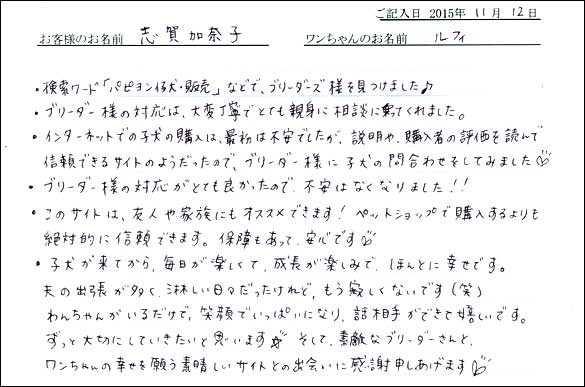 ご記入日 2015年 11月 12日
お客様のお名前 志賀加奈子 ワンちゃんのお名前 ルフィ
・検索ワード「パピヨン仔犬・販売」などで、ブリーダーズ様を見つけました♪
・ブリーダー様の対応は、大変丁寧でとても親身に相談に乗てくれました。
・インターネットでの子犬の購入は、最初は不安でしたが、説明や、購入者の評価を読んで
信頼できるサイトのようだったので、ブリーダー様に子犬の問合わせをしてみました♡
・ブリーダー様の対応がとても良かったので、不安はなくなりました!!
・このサイトは、友人や家族にもオススメできます! ペットショップで購入するよりも
絶対的に信頼できます。保障もあって、安心です♡
・子犬が来てから、毎日が楽しくて、成長が楽しみで、ほんとに幸せです。
夫の出張が多く、淋しい日々だったけれど、もう寂しくないです(笑)
わんちゃんがいるだけで、笑顔でいっぱいになり、話相手ができて嬉しいです。
ずっと大切にしていきたいと思います☆ そして、素敵なブリーダーさんと、
ワンちゃんの幸せを願う素晴しいサイトとの出会いに感謝申しあげます♡